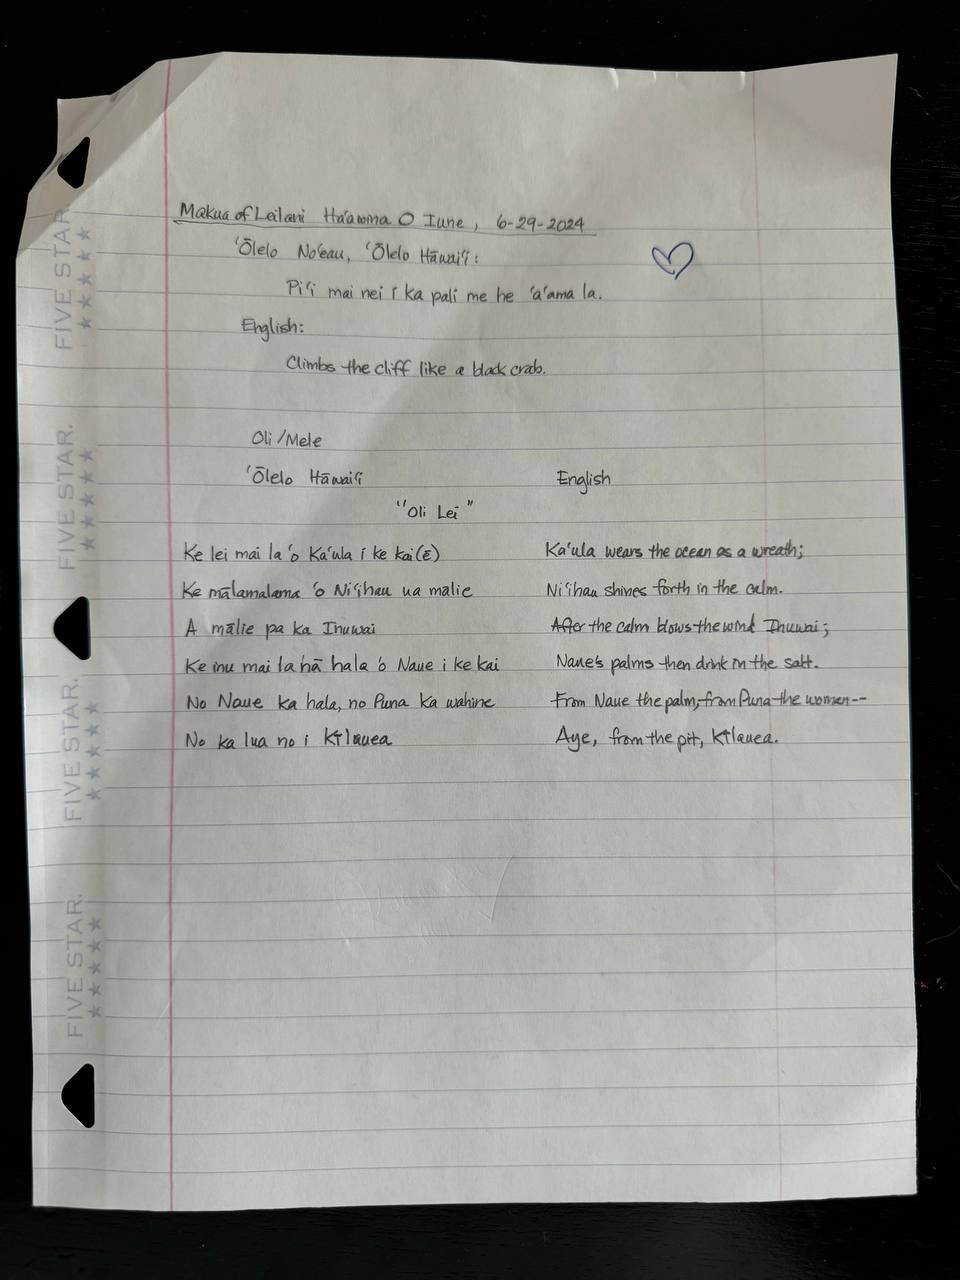 Makua of Leilani Ha'awina O Iune, 6-29-2024
'Ōlelo No'eau, 'Ōlelo Hāwai'i:
Pi'i mai nei i ka pali me he 'a'ama la.
English:
Climbs the cliff like a black crab.
Oli/Mele
'Ōlelo Hāwai'i English
"Oli Lei"
Ke lei mai la 'o Ka'ula i ke kai(ē) Ka'ula wears the ocean as a wreath;
Ke mālamalama 'o Ni'ihau ua malie Ni'ihau shines forth in the calm.
A mālie pa ka Inuwai After the calm blows the wind Inuwai;
Ke inu mai la nā hala 'o Naue i ke kai Naue's palms then drink in the salt.
No Naue ka hala, no Puna ka wahine From Naue the palm, from Puna the women--
No ka lua no i Kīlauea Aye, from the pit, Kīlauea.
FIVE STAR.
FIVE STAR.
FIVE STAR.
FIVE STAR.